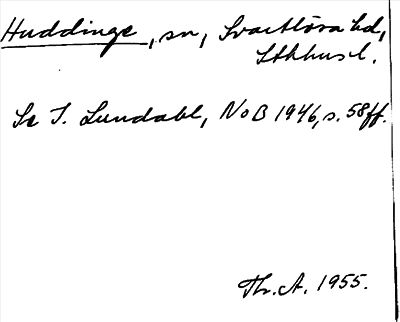 Huddinge, sn, Svartlösa hd,
Sthlms l.
Se I. Lundahl, NoB 1946, s. 58ff.
Th. A. 1955.